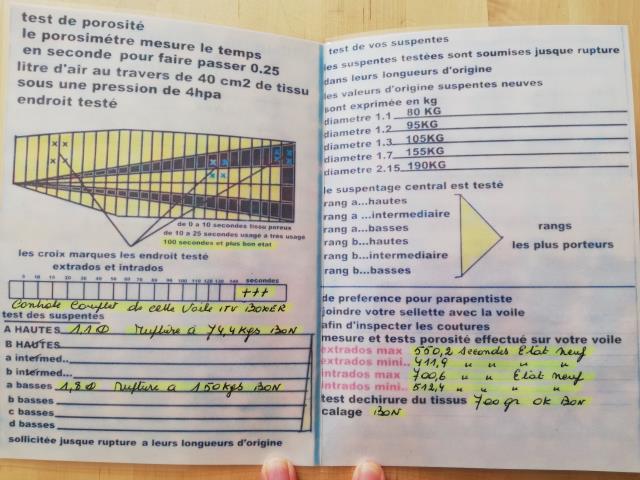 test de porosité
le porosimétre mesure le temps
en seconde pour faire passer 0.25
litre d'air au travers de 40 cm2 de tissu
sous une pression de 4hpa
endroit testé
de 0 a 10 secondes tissu poreux
de 10 a 25 secondes usagé a trés usagé
100 secondes et plus bon etat
les croix marques les endroit testé
extrados et intrados
5 10 20 30 40 50 60 70 80 90 100 110 120 130 140 secondes
+++
Controle complet de cette Voile ITV BOXER
test des suspentes
A HAUTES 1,1 Ø Rupture à 74,4 Kgs BON
B HAUTES
a intermed..
b intermed...
a basses 1,8 Ø Rupture a 150 Kgs BON
b basses
c basses
d basses
sollicitée jusque rupture a leurs longueurs d'origine
test de vos suspentes
les suspentes testées sont soumises jusque rupture
dans leurs longueurs d'origine
les valeurs d'origine suspentes neuves
sont exprimée en kg
diametre 1.1 80 KG
diametre 1.2 95KG
diametre 1.3 105KG
diametre 1.7 155KG
diametre 2.15 190KG
le suspentage central est testé
rang a...hautes
rang a ...intermediaire
rang a...basses
rang b...hautes
rang b...intermediaire
rang b...basses
rangs
les plus porteurs
de preference pour parapentiste
joindre votre sellette avec la voile
afin d'inspecter les coutures
mesure et tests porosité effectué sur votre voile
extrados max 550,2 secondes Etat neuf
extrados mini.. 411,9 " " " "
intrados max 700,6 " " Etat neuf
intrados mini.. 512,4 " " " "
test dechirure du tissus 700 gr OK BON
calage BON